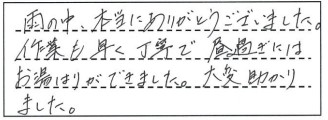 雨の中、本当にありがとうございました。
作業も早く丁寧で昼過ぎには
お湯はりができました。大変助かり
ました。